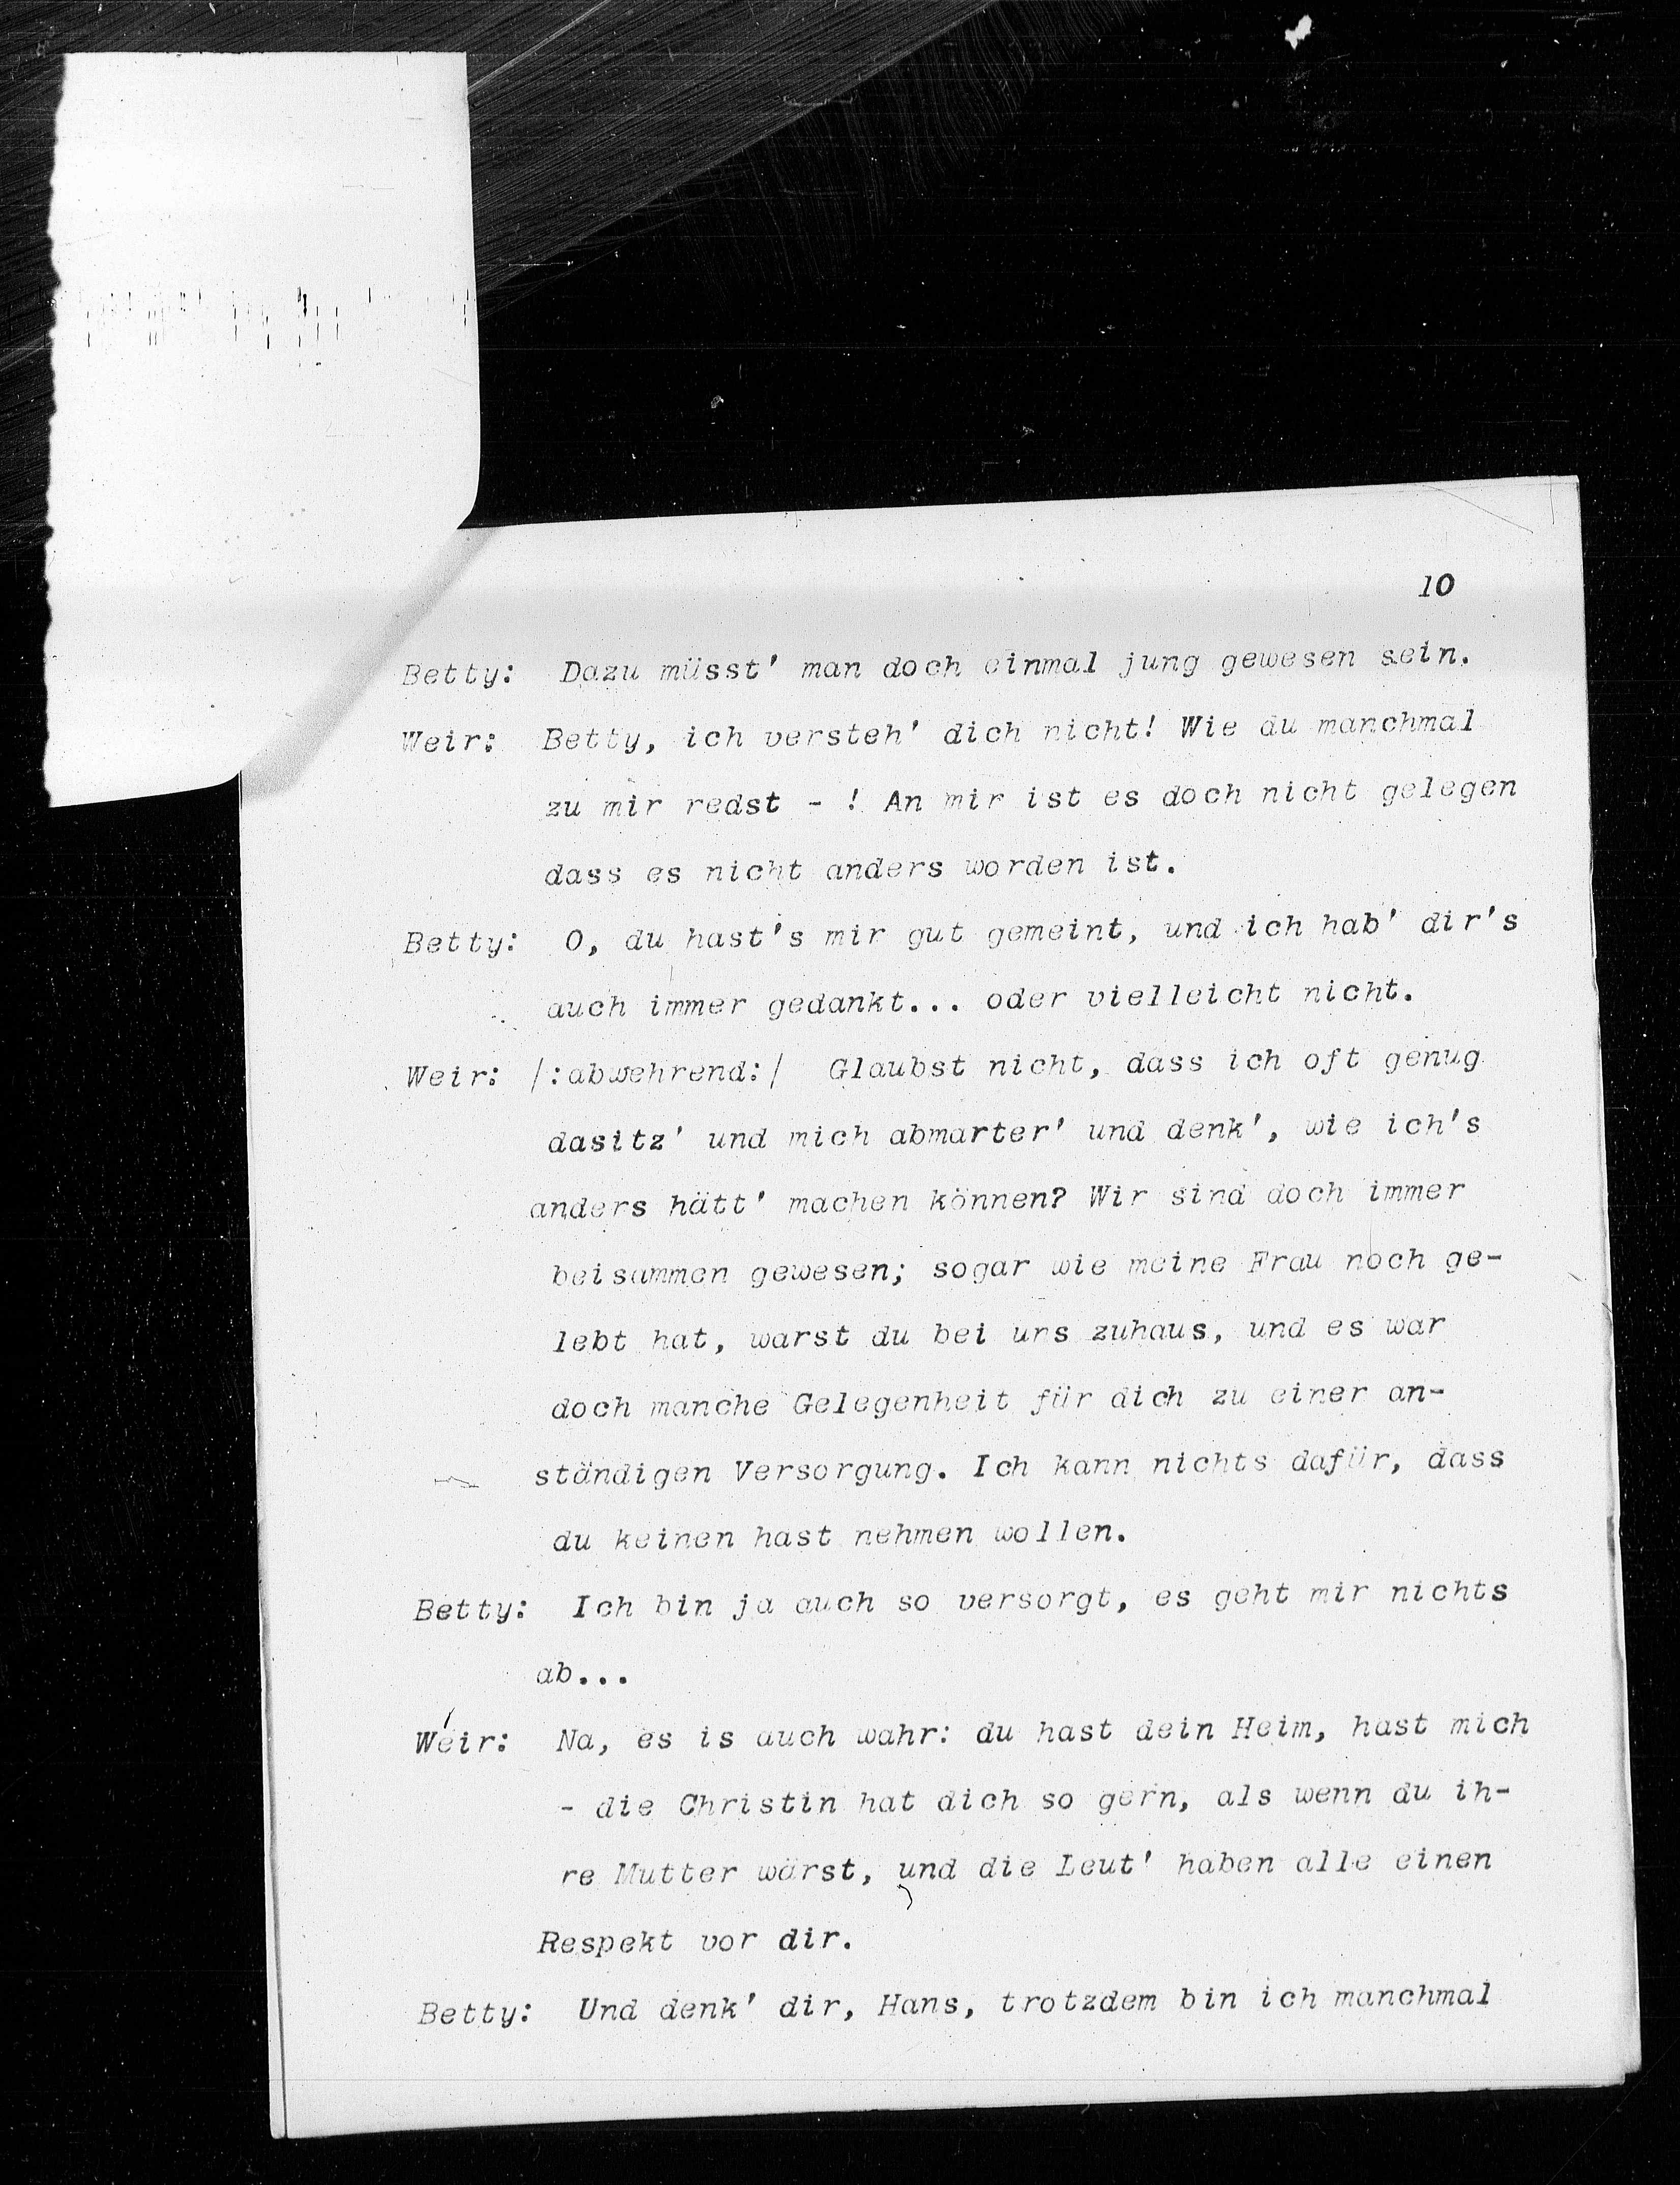 10
Betty: Dazu müsst' man doch einmal jung gewesen sein.
Weir: Betty, ich versteh' dich nicht! Wie du manchmal
zu mir redst - ! An mir ist es doch nicht gelegen
dass es nicht anders worden ist.
Betty: O, du hast's mir gut gemeint, und ich hab' dir's
auch immer gedankt... oder vielleicht nicht.
Weir: /:abwehrend:/ Glaubst nicht, dass ich oft genug
dasitz' und mich abmarter' und denk', wie ich's
anders hätt' machen können? Wir sind doch immer
beisammen gewesen; sogar wie meine Frau noch ge-
lebt hat, warst du bei uns zuhaus, und es war
doch manche Gelegenheit für dich zu einer an-
ständigen Versorgung. Ich kann nichts dafür, dass
du keinen hast nehmen wollen.
Betty: Ich bin ja auch so versorgt, es geht mir nichts
ab...
Weir: Na, es is auch wahr: du hast dein Heim, hast mich
- die Christin hat dich so gern, als wenn du ih-
re Mutter wärst, und die Leut' haben alle einen
Respekt vor dir.
Betty: Und denk' dir, Hans, trotzdem bin ich manchmal